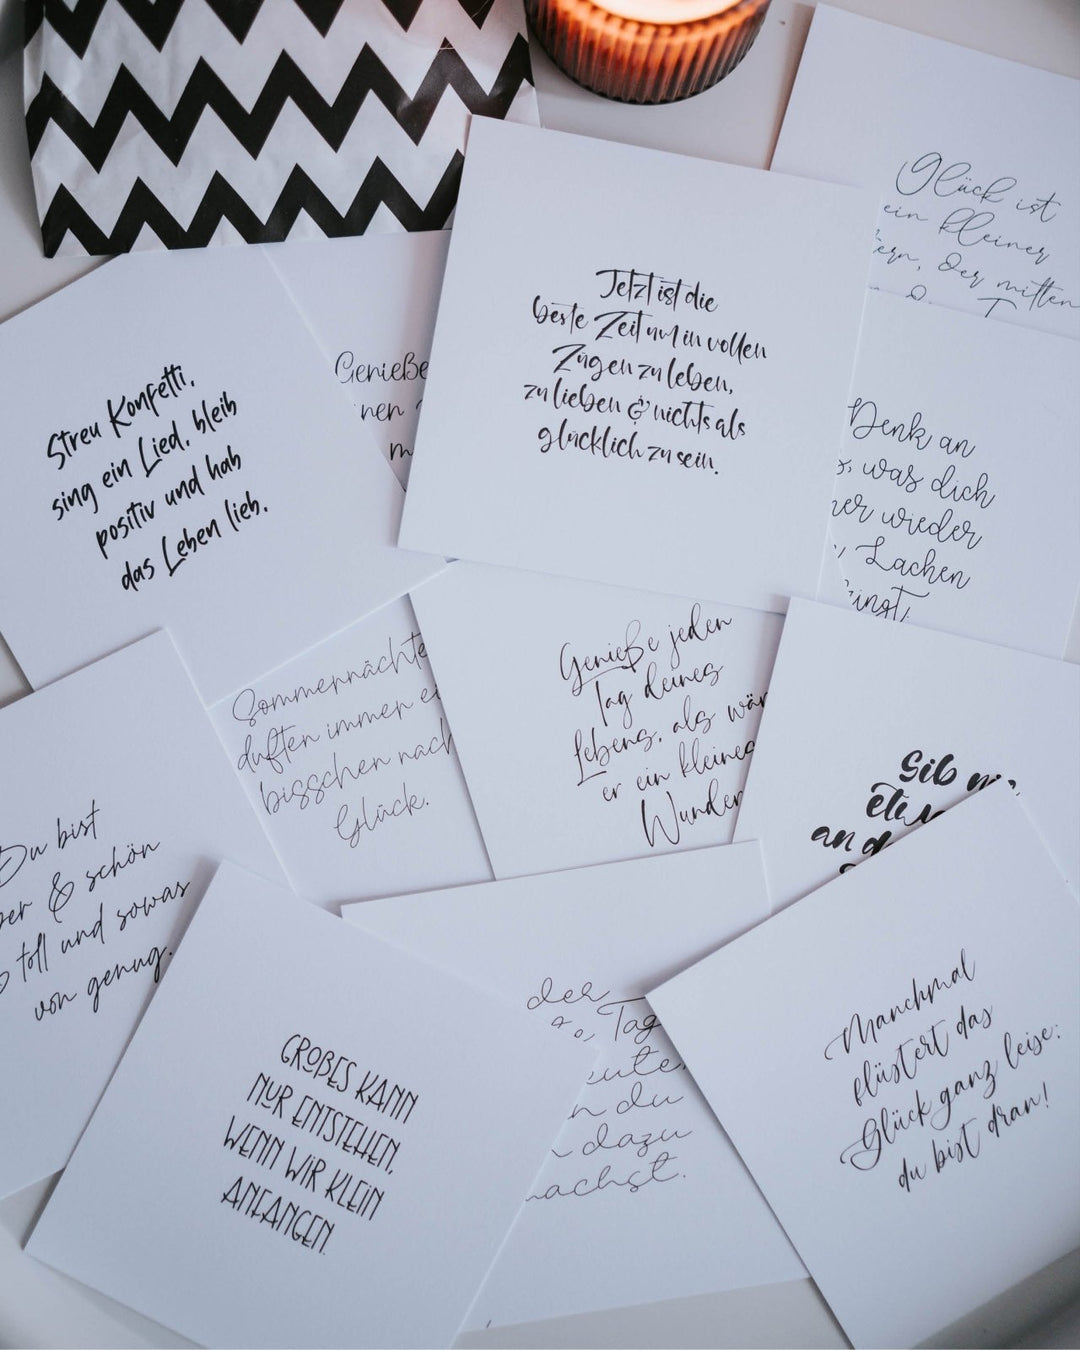 Glück ist
ein kleiner
der mitten
Jetzt ist die
beste Zeit um in vollen
Zügen zu leben,
zu lieben & nichts als
glücklich zu sein.
Streu Konfetti,
sing ein Lied, bleib
positiv und hab
das Leben lieb.
Genieße
Denk an
was dich
wieder
Lachen
Sommernächte
duften immer
bisschen nach
Glück.
Genieße jeden
Tag deines
Lebens, als
er ein kleines
Wunder
Gib
an
Du bist
& schön
toll und sowas
von genug.
der
Tag
du
dazu
GROßES KANN
NUR ENTSTEHEN,
WENN WIR KLEIN
ANFANGEN.
Manchmal
flüstert das
Glück ganz leise:
du bist dran!